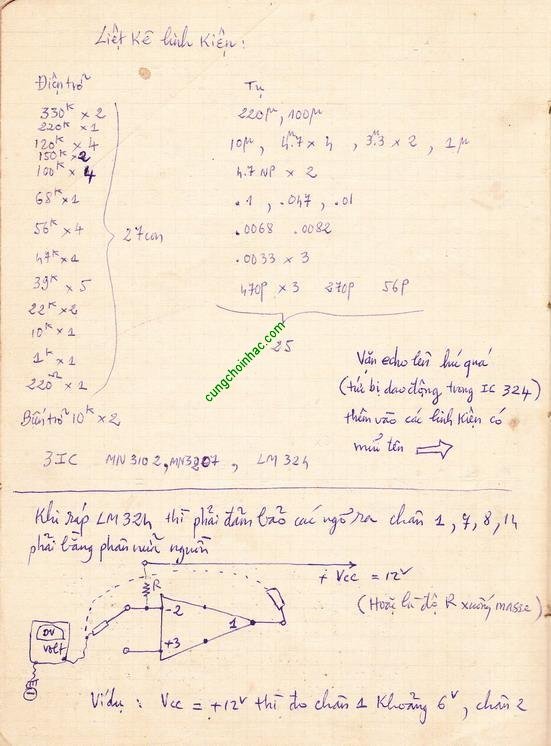 Liệt Kê linh Kiện :
Điện trở
330K × 2
220K × 1
120K × 4
150K × 2
100K × 4
68K × 1
56K × 4
47K × 1
39K × 5
22K × 2
10K × 1
1K × 1
220Ω × 1
27 con
Biến trở 10K × 2
Tụ
220µ, 100µ
10µ, 4.7µ × 4, 3.3µ × 2, 1µ
4.7 NP × 2
.1, .047, .01
.0068 .0082
.0033 × 3
470P × 3 270P 56P
25
cungchoinhac.com
Vặn echo lên hú quá
(tức bị dao động trong IC 324)
thêm vào các linh Kiện có
mũi tên
3 IC MN 3102, MN3207, LM 324
Khi ráp LM 324 thì phải đảm bảo các ngõ ra chân 1, 7, 8, 14
phải bằng phân nửa nguồn
+ Vcc = 12V
(Hoặc là để R xuống masse)
R
-2
+3
1
DV
Volt
Ví dụ : Vcc = +12V thì đo chân 1 Khoảng 6V, chân 2